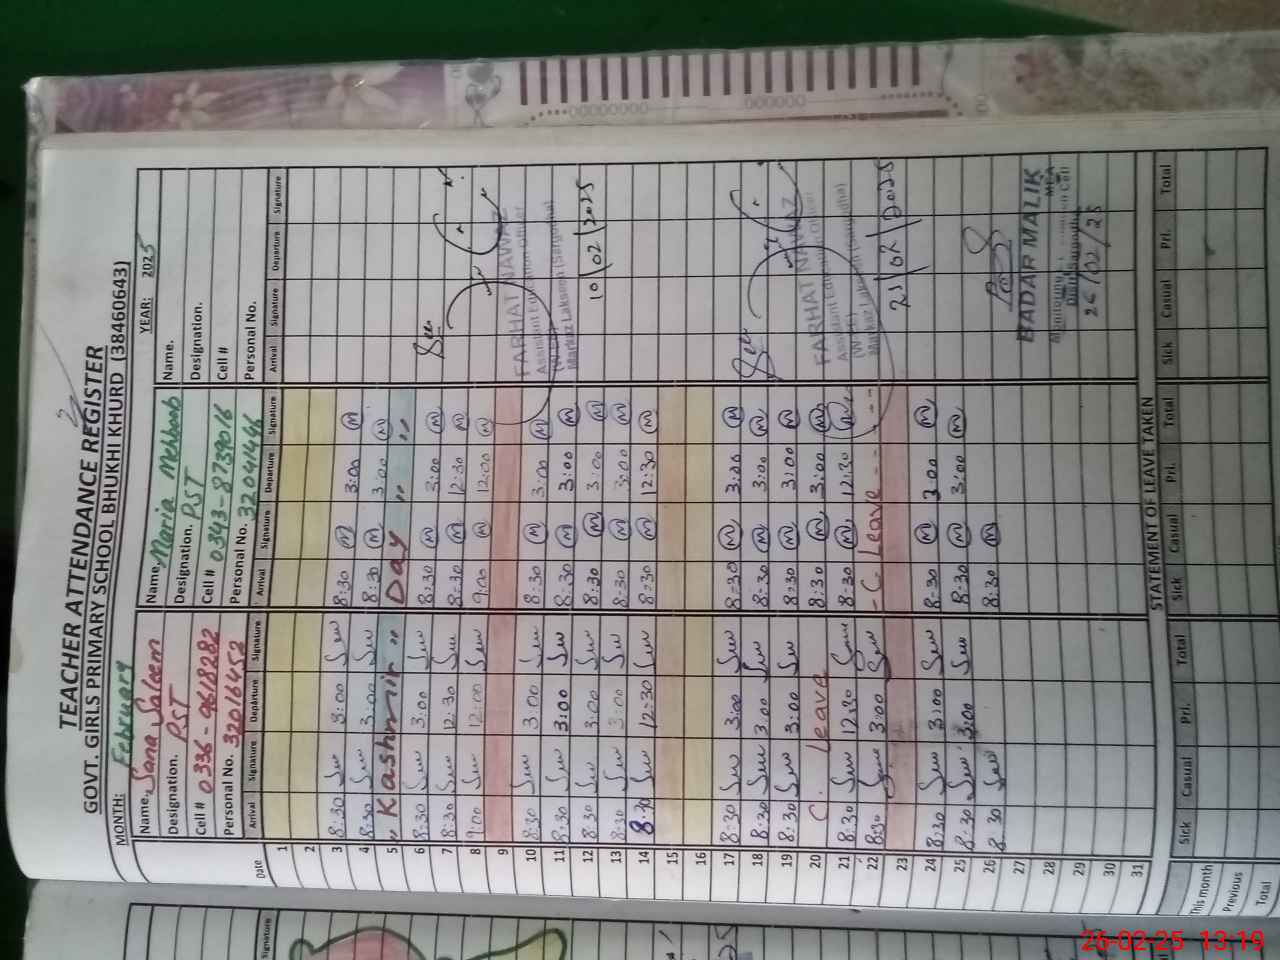 TEACHER ATTENDANCE REGISTER
GOVT. GIRLS PRIMARY SCHOOL BHUKHI KHURD (38460643)
MONTH: February YEAR: 2025
Name. Sana Saleem Name. Maria Mehboob Name.
Designation. PST Designation. PST Designation.
Cell # 0336-9618282 Cell # 0343-8739016 Cell #
Personal No. 32016452 Personal No. 32041446 Personal No.
Date Arrival Signature Departure Signature Arrival Signature Departure Signature Arrival Signature Departure Signature
1
2
3 8:30 3:00 8:30 M 3:00 M
4 8:30 3:00 8:30 M 3:00 M
5 " Kashmir " Day " "
6 8:30 3:00 8:30 M 3:00 M
7 8:30 12:30 8:30 M 12:30 M
8 9:00 12:00 9:00 M 12:00 M
9
10 8:30 3:00 8:30 M 3:00 M
11 8:30 3:00 8:30 M 3:00 M
12 8:30 3:00 8:30 M 3:00 M
13 8:30 3:00 8:30 M 3:00 M
14 8:30 12:30 8:30 M 12:30 M
15
16
17 8:30 3:00 8:30 M 3:00 M
18 8:30 3:00 8:30 M 3:00 M
19 8:30 3:00 8:30 M 3:00 M
20 C. Leave 8:30 M 3:00 M
21 8:30 12:30 8:30 M 12:30 M
22 8:30 3:00 - C Leave - - - - -
23
24 8:30 3:00 8:30 M 3:00 M
25 8:30 3:00 8:30 M 3:00 M
26 8:30 8:30 M
27
28
29
30
31
FARHAT NAWAZ
Assistant Education Officer
(W-EE)
Markaz Lakseen (Sargodha)
10/02/2025
FARHAT NAWAZ
Assistant Education Officer
Markaz Lakseen (Sargodha)
21/02/2025
BADAR MALIK
MEA
26/02/25
STATEMENT OF LEAVE TAKEN
Sick Casual Pri. Total Sick Casual Pri. Total Sick Casual Pri. Total
This month
Previous
Total
Signature
26-02-25 13:19